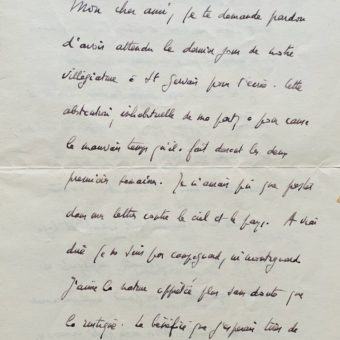 Mon cher ami, je te demande pardon
d'avoir attendu le dernier jour de notre
villégiature à St Gervais pour t'écrire. Cette
abstention, inhabituelle de ma part, a pour cause
le mauvais temps qu'il a fait durant les deux
premières semaines. Je n'aurais fait que pester
dans mes lettres contre le ciel et le pays. A vrai
dire je ne suis pas campagnard, ni montagnard
J'aime la nature apprêtée plus sans doute que
la rustique. Le bénéfice que j'espérais tirer de